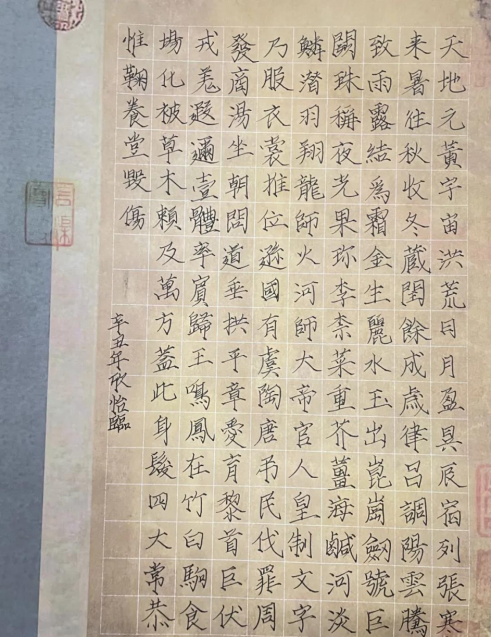 天地元黃宇宙洪荒日月盈昃辰宿列張寒
来暑往秋收冬蔵閏餘成歲律吕調陽雲騰
致雨露結為霜金生麗水玉出崑崗劒號巨
闕珠稱夜光果珎李柰菜重芥薑海鹹河淡
鱗潛羽翔龍師火河師大帝官人皇制文字
乃服衣裳推位遜國有虞陶唐弔民伐罪周
發商湯坐朝問道垂拱平章愛育黎首臣伏
戎羌遐邇壹體率賓歸王鳴鳳在竹白駒食
場化被草木賴及萬方蓋此身髮四大常恭
惟鞠養豈毀傷
辛丑年欣怡臨